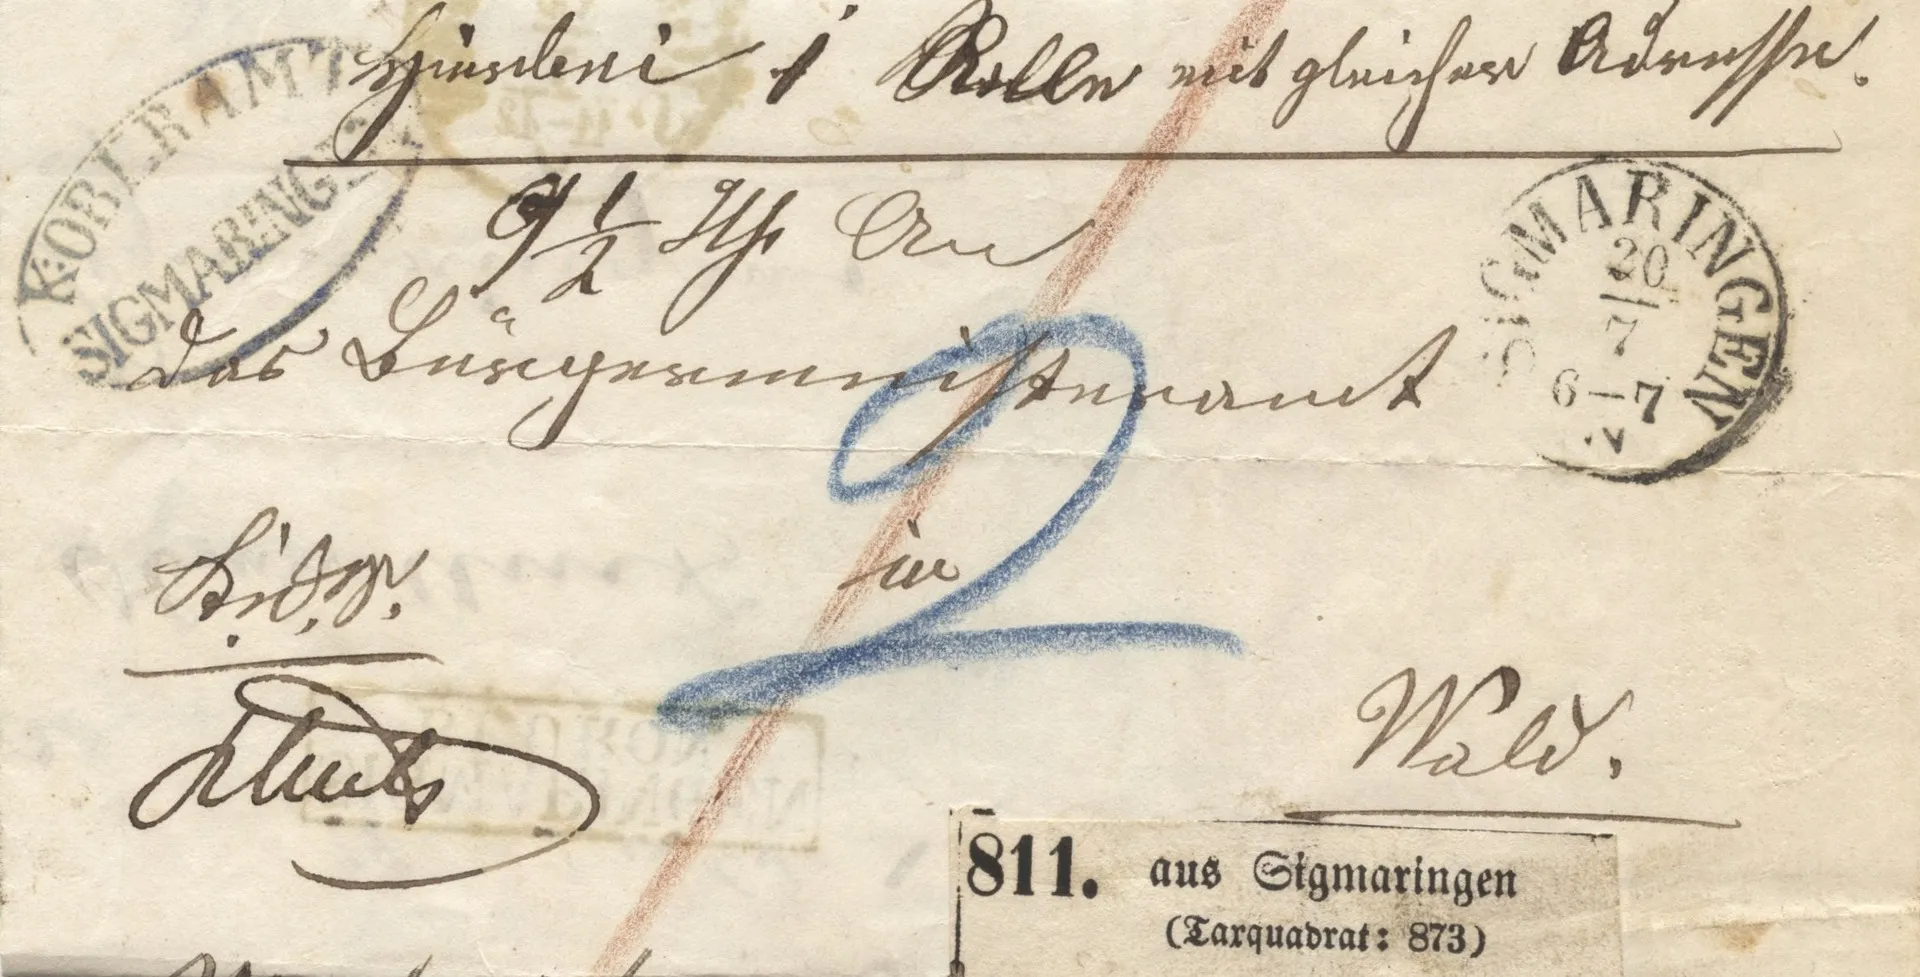 Hierbei 1 Rolle mit gleicher Adresse.
K. OBERAMT
SIGMARINGEN
9 1/2 Uhr An
SIGMARINGEN
20
7
6-7
N
das Bürgermeisteramt
2
in
Wald.
811. aus Sigmaringen
(Taxquadrat: 873)